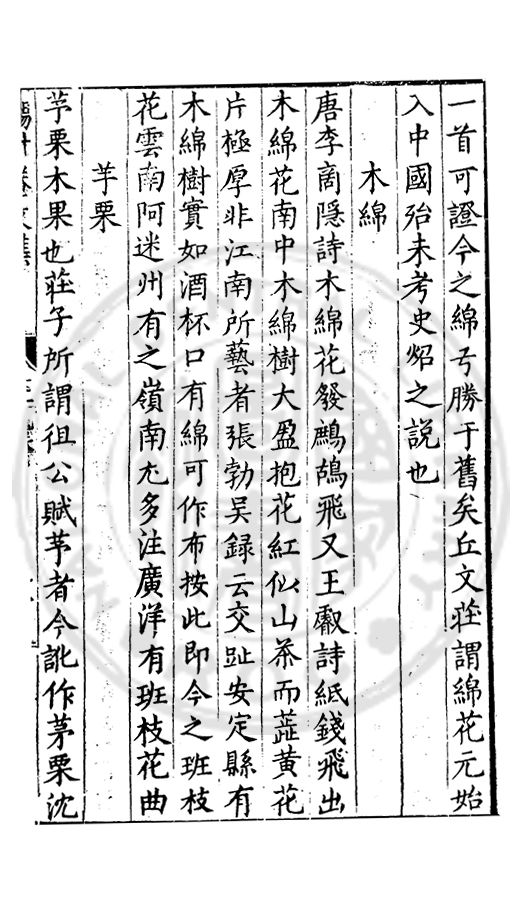 一首可證今之綿乃勝于舊矣丘文莊謂綿花元始
入中國殆未考史炤之說也
木綿
唐李商隠詩木綿花發鷓鴣飛又王叡詩紙錢飛出
木綿花南中木綿樹大盈抱花紅似山茶而蕋黃花
片極厚非江南所藝者張勃吴録云交趾安定縣有
木綿樹實如酒杯口有綿可作布按此即今之班枝
花雲南阿迷州有之嶺南尤多注廣洋有班枝花曲
芋栗
芧栗木果也莊子所謂徂公賦芧者今訛作茅栗沈